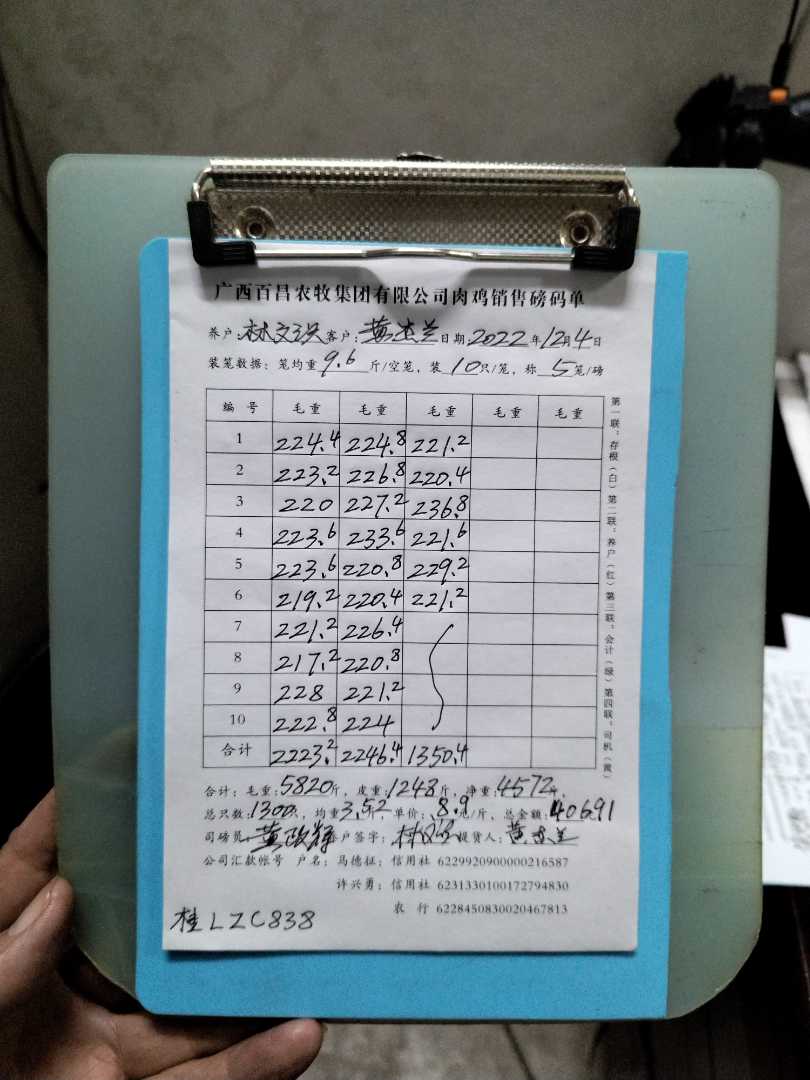 广西百昌农牧集团有限公司肉鸡销售磅码单
养户:林文识 客户:黄杰兰 日期:2022年12月4日
装笼数据:笼均重9.6斤/空笼,装10只/笼,称5笼/磅
编号 毛重 毛重 毛重 毛重 毛重
1 224.4 224.8 221.2
2 223.2 226.8 220.4
3 220 227.2 236.8
4 223.6 233.6 221.6
5 223.6 220.8 229.2
6 219.2 220.4 221.2
7 221.2 226.4
8 217.2 220.8
9 228 221.2
10 222.8 224
合计 2223.2 2246.4 1350.4
合计:毛重:5820斤,皮重:1248斤,净重:4572斤,
总只数:1300只,均重3.52,单价:8.9元/斤,总金额:40691
司磅员:黄政辉 养户签字: 提货人:黄杰兰
公司汇款帐号 户名:马德征:信用社 6229920900000216587
许兴勇:信用社 6231330100172794830
农行 6228450830020467813
桂LZC838
第一联:存根(白)第二联:养户(红)第三联:会计(绿)第四联:司机(黄)